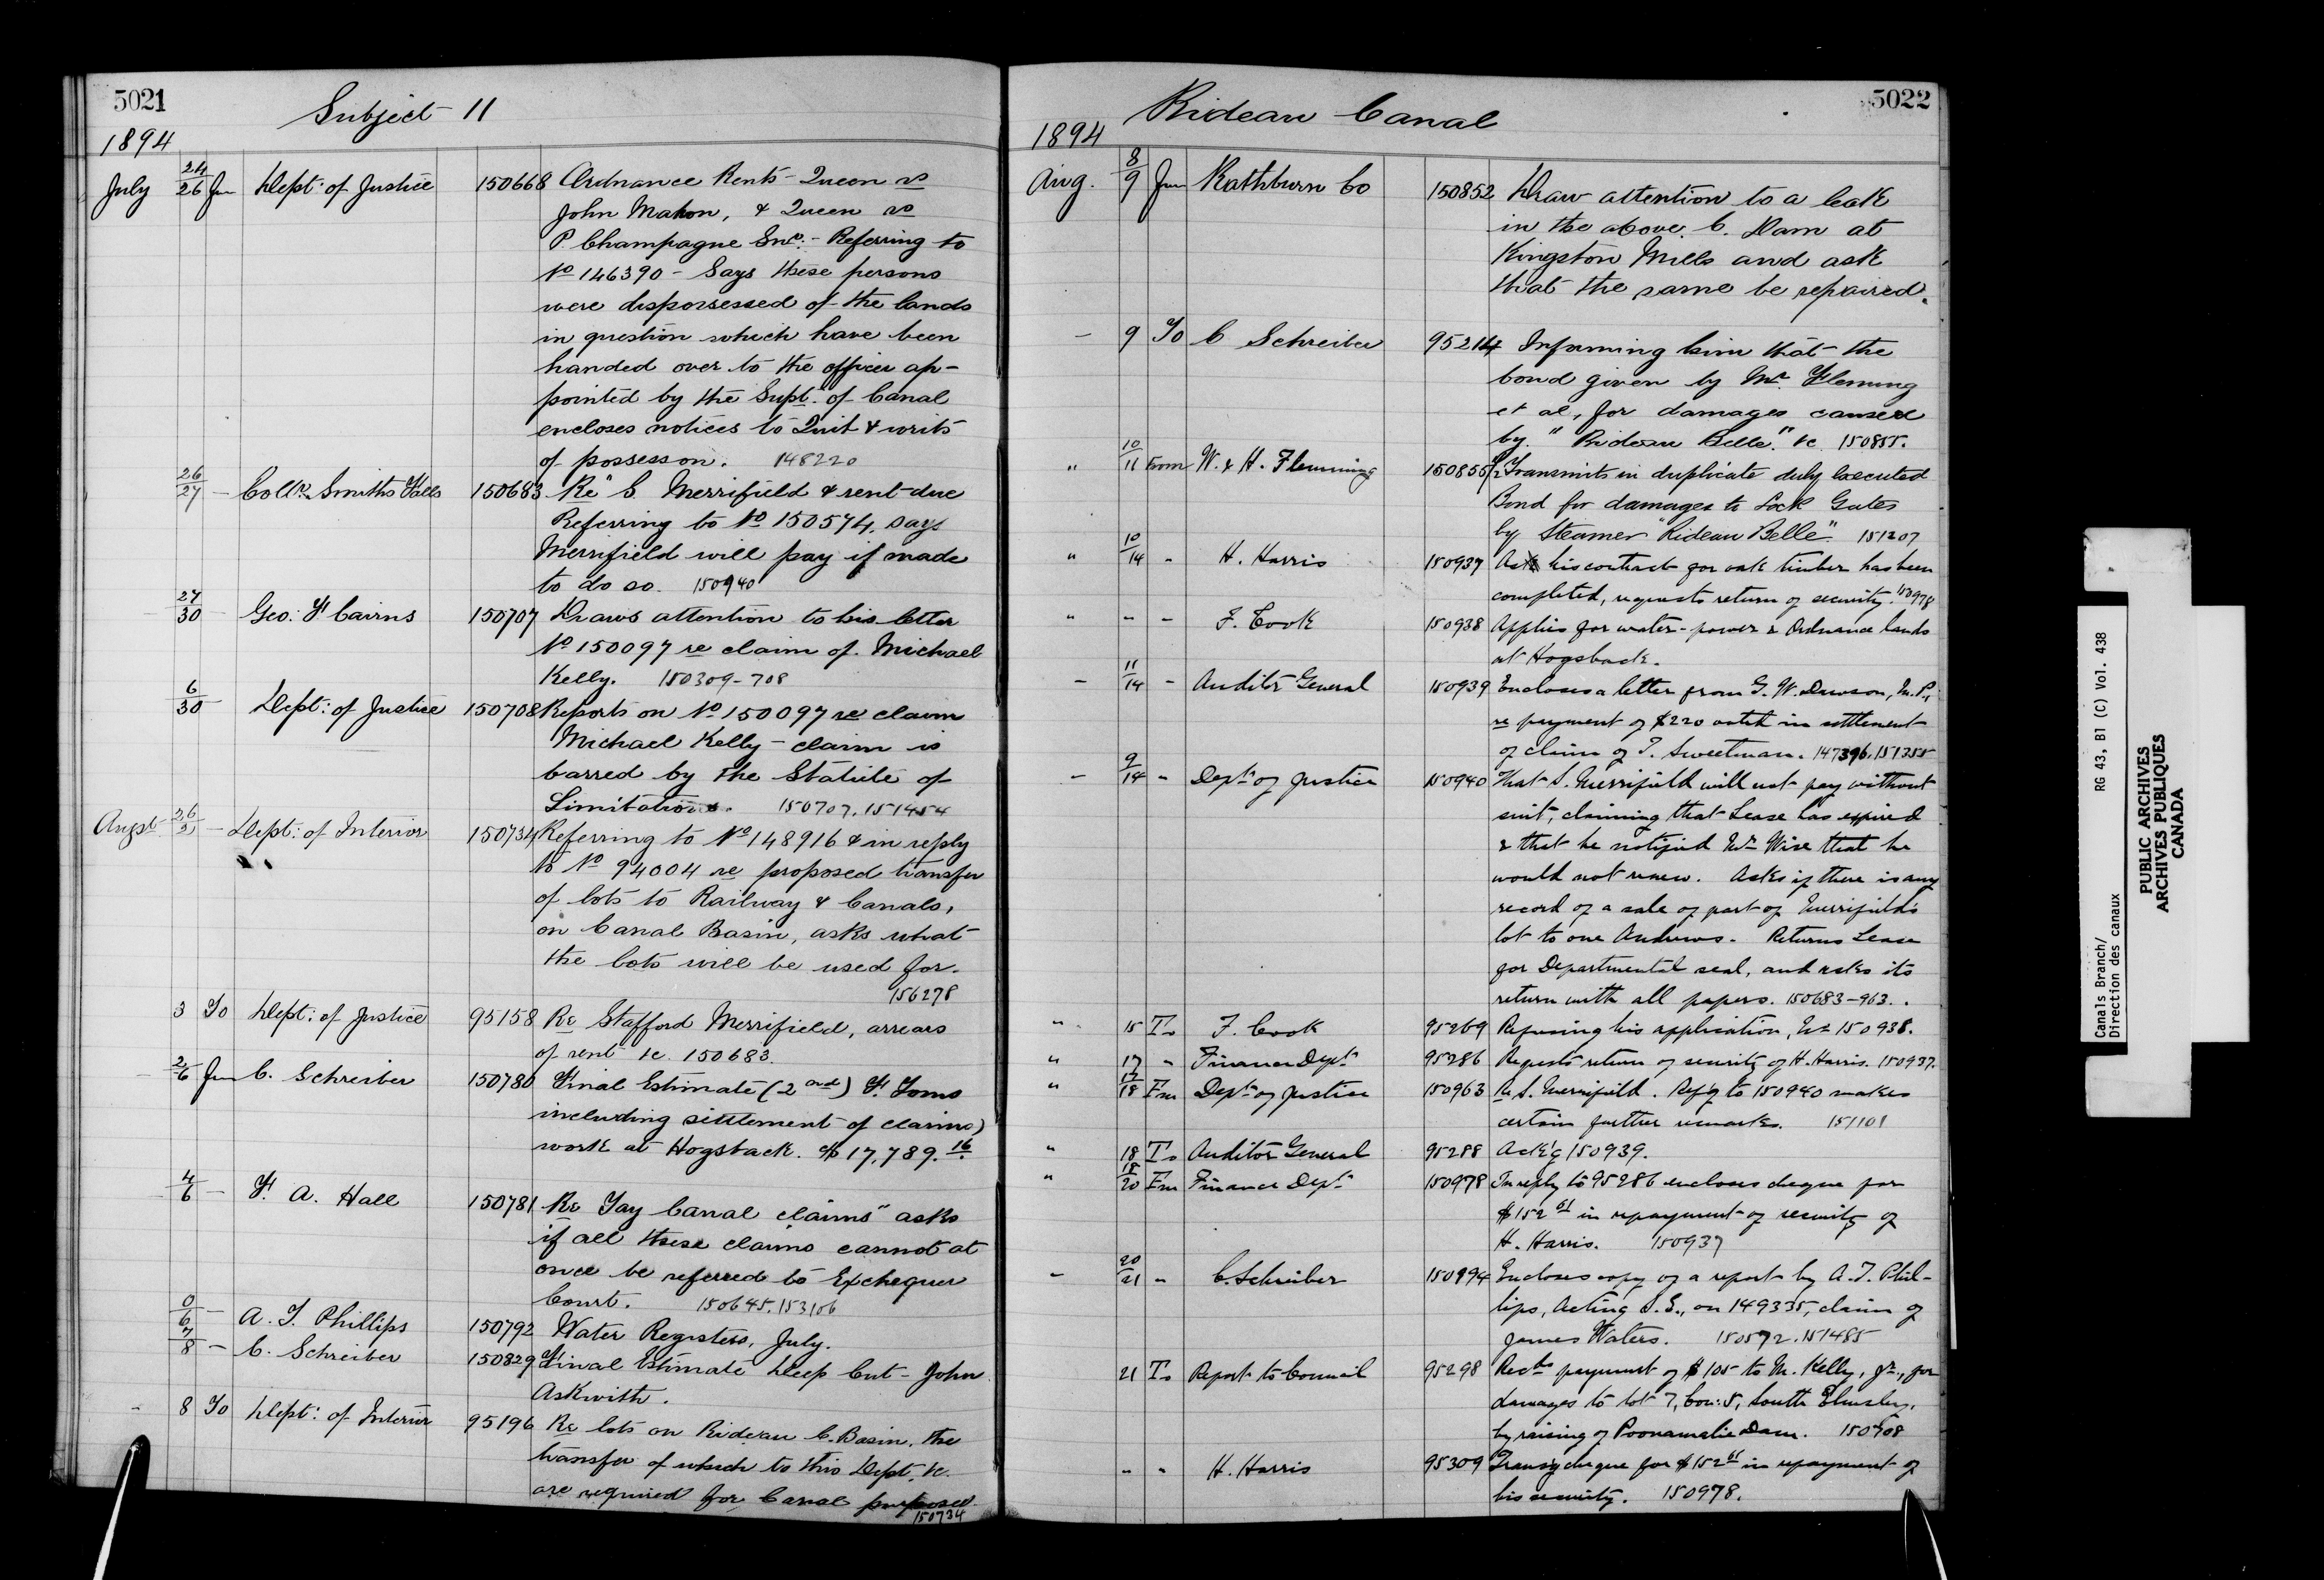 5021
Subject 11
1894
July 24/26 Fm Dept: of Justice 150668 Ordnance Rents - Queen vs
John Mahon, & Queen vs
P. Champagne Snr: - Referring to
No 146390 - Says these persons
were dispossessed of the lands
in question which have been
handed over to the officer ap-
pointed by the Supt. of Canal
encloses notices to Quit & writs
of possession. 148220
26/27 - Collr Smiths Falls 150683 Re S. Merrifield & rent due
Referring to No 150574, says
Merrifield will pay if made
to do so. 150940
- 27/30 - Geo. F Cairns 150707 Draws attention to his letter
No 150097 re claim of Michael
Kelly. 150309-708
6/30 Dept: of Justice 150708 Reports on No 150097 re claim
Michael Kelly - claim is
barred by the Statute of
Limitations. 150707. 151454
Augst 26/2 - Dept: of Interior 150734 Referring to No 148916 & in reply
to No 94004 re proposed transfer
of lots to Railway & Canals,
on Canal Basin, asks what
the lots will be used for.
156278
3 To Dept: of Justice 95158 Re Stafford Merrifield, arrears
of rent &c. 150683.
- 2/6 Fm C. Schreiber 150780 Final Estimate (2nd) F. Toms
including settlement of claims)
work at Hogsback. $17,789.16
4/6 - F. A. Hall 150781 Re Tay Canal claims" asks
if all these claims cannot at
once be referred to Exchequer
Court. 150645. 153106
0/6 - A. T. Phillips 150792 Water Registers, July.
7/8 - C. Schreiber 150829 Final Estimate Deep Cut - John
Askwith.
- 8 To Dept: of Interior 95196 Re lots on Rideau C. Basin, the
transfer of which to this Dept. &c.
are required for Canal purposes
150734
Rideau Canal
5022
1894
Aug. 8/9 Fm Rathburn Co 150852 Draw attention to a leak
in the above. C. Dam at
Kingston Mills and ask
that the same be repaired.
- 9 To C Schreiber 95214 Informing him that the
bond given by Mr. Fleming
et al, for damages caused
by "Rideau Belle" &c 150855.
" 10/11 From W. & H. Flemming 150855½ Transmits in duplicate duly executed
Bond for damages to Lock Gates
by Steamer "Rideau Belle" 151207
" 10/14 - H. Harris 150937 As his contract for oak timber has been
completed, requests return of security. 150978
" - - F. Cook 150938 Applies for water-power & Ordnance lands
at Hogsback.
- 11/14 - Auditor General 150939 Encloses a letter from G. W. Dawson, M.P.,
re payment of $220 voted in settlement
of claim of T. Sweetman. 147396. 151355
- 9/14 - Dept. of Justice 150940 That S. Merrifield will not pay without
suit, claiming that Lease has expired
& that he notified Mr. Wise that he
would not renew. Asks if there is any
record of a sale of part of Merrifield's
lot to one Andrews. Returns Lease
for Departmental seal, and asks its
return with all papers. 150683-963.
" 15 To F. Cook 95269 Refusing his application, No 150938.
" 17 " Finance Dept. 95286 Requests return of security of H. Harris. 150937.
" 17/18 Fm Dept. of Justice 150963 Re S. Merrifield. Ref'g to 150940 makes
certain further remarks. 151101
" 18 To Auditor General 95288 Ack'g 150939.
" 18/20 Fm Finance Dept. 150978 In reply to 95286 encloses cheque for
$152 61 in repayment of security of
H. Harris. 150937
- 20/21 " C. Schreiber 150994 Encloses copy of a report by A. T. Phil-
lips, Acting S. E., on 149335, claim of
James Waters. 150572. 151485
21 To Report to Council 95298 Recds payment of $105 to M. Kelly, Jr., for
damages to lot 7, Con: 5, South Elmsley,
by raising of Poonamalie Dam. 150708
" " H. Harris 95309 Transg cheque for $152 61 in repayment of
his security. 150978.
Canals Branch/
Direction des canaux
RG 43, B1 (C) Vol. 438
PUBLIC ARCHIVES
ARCHIVES PUBLIQUES
CANADA